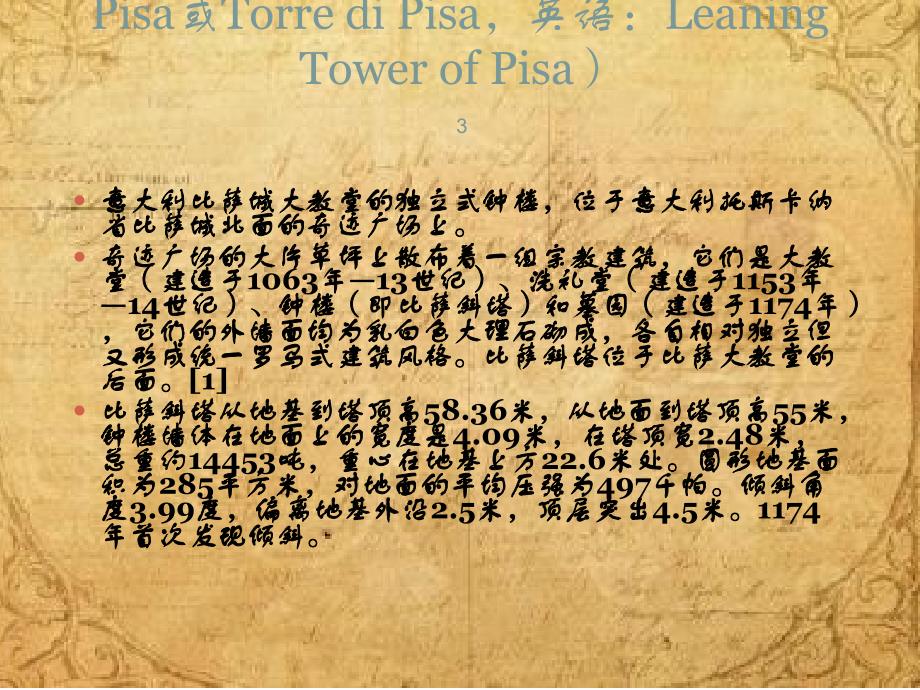 Pisa或Torre di Pisa，英语：Leaning
Tower of Pisa）
3
• 意大利比萨城大教堂的独立式钟楼，位于意大利托斯卡纳
省比萨城北面的奇迹广场上。
• 奇迹广场的大片草坪上散布着一组宗教建筑，它们是大教
堂（建造于1063年—13世纪）、洗礼堂（建造于1153年
—14世纪）、钟楼（即比萨斜塔）和墓园（建造于1174年）
，它们的外墙面均为乳白色大理石砌成，各自相对独立但
又形成统一罗马式建筑风格。比萨斜塔位于比萨大教堂的
后面。[1]
• 比萨斜塔从地基到塔顶高58.36米，从地面到塔顶高55米，
钟楼墙体在地面上的宽度是4.09米，在塔顶宽2.48米，
总重约14453吨，重心在地基上方22.6米处。圆形地基面
积为285平方米，对地面的平均压强为497千帕。倾斜角
度3.99度，偏离地基外沿2.5米，顶层突出4.5米。1174
年首次发现倾斜。